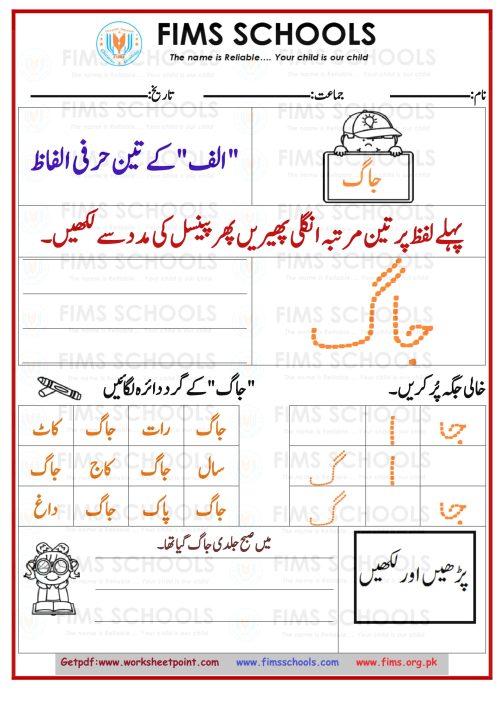 FIMS SCHOOLS
The name is Reliable.... Your child is our child
نام: جماعت: تاریخ:
جاگ
"الف" کے تین حرفی الفاظ
پہلے لفظ پر تین مرتبہ انگلی پھیریں پھر پینسل کی مدد سے لکھیں۔
جاگ
خالی جگہ پُر کریں۔
جا ا
ا گ
جا گ
"جاگ" کے گرد دائرہ لگائیں
جاگ رات جاگ کاٹ
سال جاگ کاج جاگ
جاگ پاک جاگ داغ
پڑھیں اور لکھیں
میں صبح جلدی جاگ گیا تھا۔
Getpdf:www.worksheetpoint.com www.fimsschools.com www.fims.org.pk